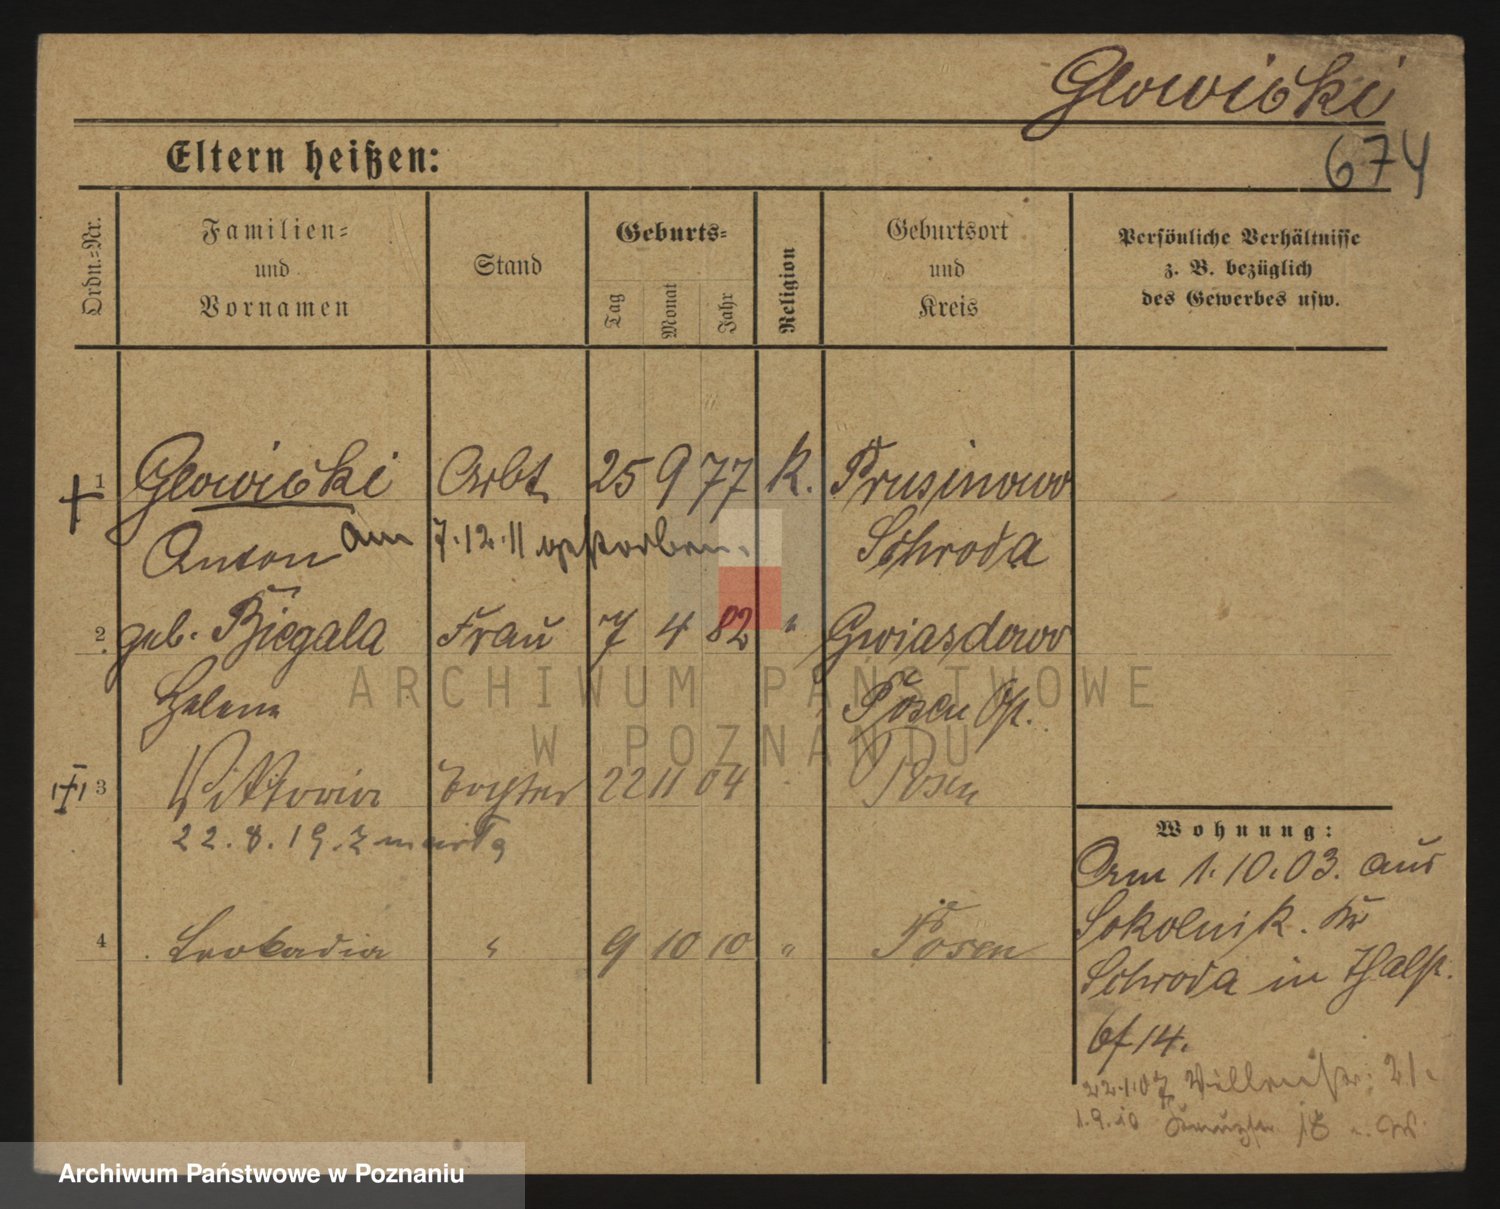 Glowicki
674
Eltern heißen:
Ordn.-Nr.
Familien-
und
Vornamen
Stand
Geburts-
Tag
Monat
Jahr
Religion
Geburtsort
und
Kreis
Persönliche Verhältnisse
z. B. bezüglich
des Gewerbes usw.
1 Glowicki Arbt 25 9 77 K. Prusinowo
Anton am 7.12.11 gestorben. Schroda
2 geb. Biegala Frau 7 4 82 " Gwiasdowo
Helene Posen Op.
3 Viktoria Tochter 22 11 04 Posen
22.8.19.
4 Leokadia " 9 10 10 " Posen
Wohnung:
Am 1.10.03. aus
Sokolnik. Kr
Schroda in Halst.
14.
21.
1.9.10 18
ARCHIWUM PAŃSTWOWE
W POZNANIU
Archiwum Państwowe w Poznaniu